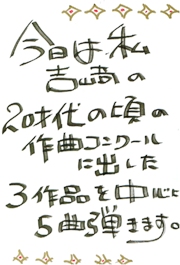 今日は、私
吉嵜の
20才代の頃の
作曲コンクール
に出した
3作品を中心に
5曲弾きます。